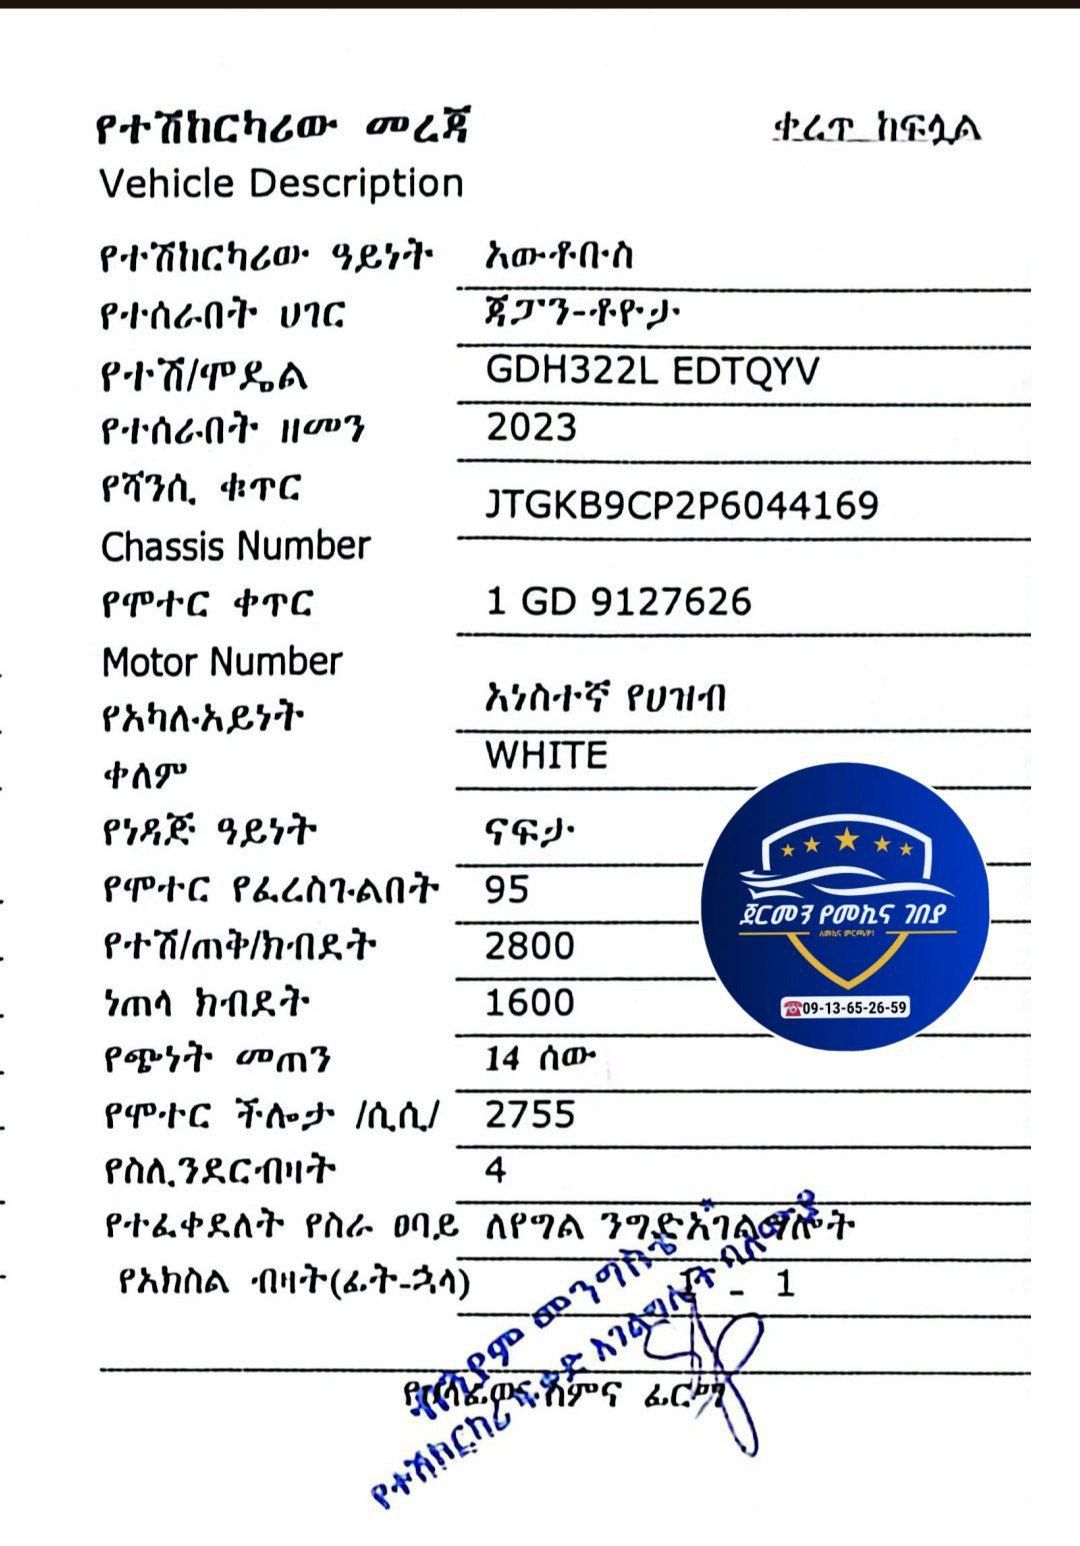 የተሽከርካሪው መረጃ
ቀረጥ ከፍሏል
Vehicle Description
የተሽከርካሪው ዓይነት አውቶቡስ
የተሰራበት ሀገር ጃፓን-ቶዮታ
የተሽ/ሞዴል GDH322L EDTQYV
የተሰራበት ዘመን 2023
የሻንሲ ቁጥር JTGKB9CP2P6044169
Chassis Number
የሞተር ቀጥር 1 GD 9127626
Motor Number
የአካሉ አይነት አነስተኛ የሀዝብ
ቀለም WHITE
የነዳጅ ዓይነት ናፍታ
የሞተር የፈረስጉልበት 95
የተሽ/ጠቅ/ክብደት 2800
ነጠላ ክብደት 1600
የጭነት መጠን 14 ሰው
የሞተር ችሎታ /ሲሲ/ 2755
የስሊንደርብዛት 4
የተፈቀደለት የስራ ፀባይ ለየግል ንግድአገልግሎት
የአክስል ብዛት(ፊት-ኋላ) 1 - 1
ፊርማ
መንግስቴ
የተሽከርካሪ አገልግሎት ባለሙያ
ጀርመን የመኪና ገበያ
ለመኪና ምርጫዎ!
☎09-13-65-26-59